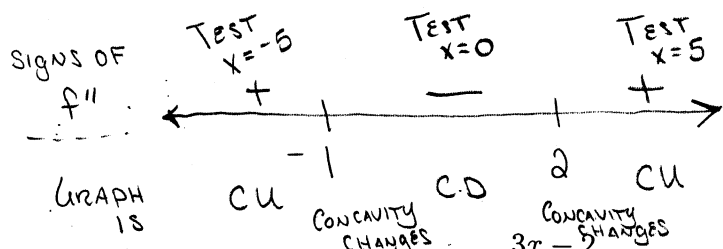 SIGNS OF f"
TEST x=-5
TEST x=0
TEST x=5
+ — +
-1 2
GRAPH IS
CU C.D CU
CONCAVITY CHANGES
CONCAVITY CHANGES